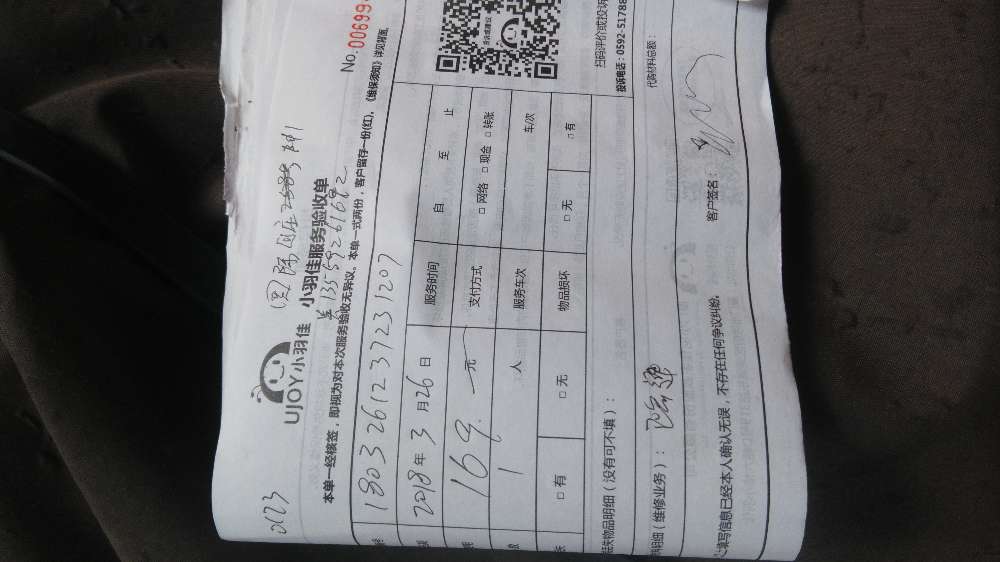 No.00699
UJOY小羽佳
小羽佳服务验收单
本单一经核签，即视为对本次服务验收无异议。本单一式两份，客户留存一份(红)，《维保须知》详见背面
1803261237231207
2018年3月26日 服务时间 自 至 止
169.一元 支付方式 □网络 □现金 □转账
1 人 服务车次 车/次
□有 □无 物品损坏 □无 □有
物品明细（没有可不填）：
扫码评价或投诉
投诉电话：0592-51788
明细（维修业务）：
代购材料总额：
填写信息已经本人确认无误，不存在任何争议纠纷。
客户签名：